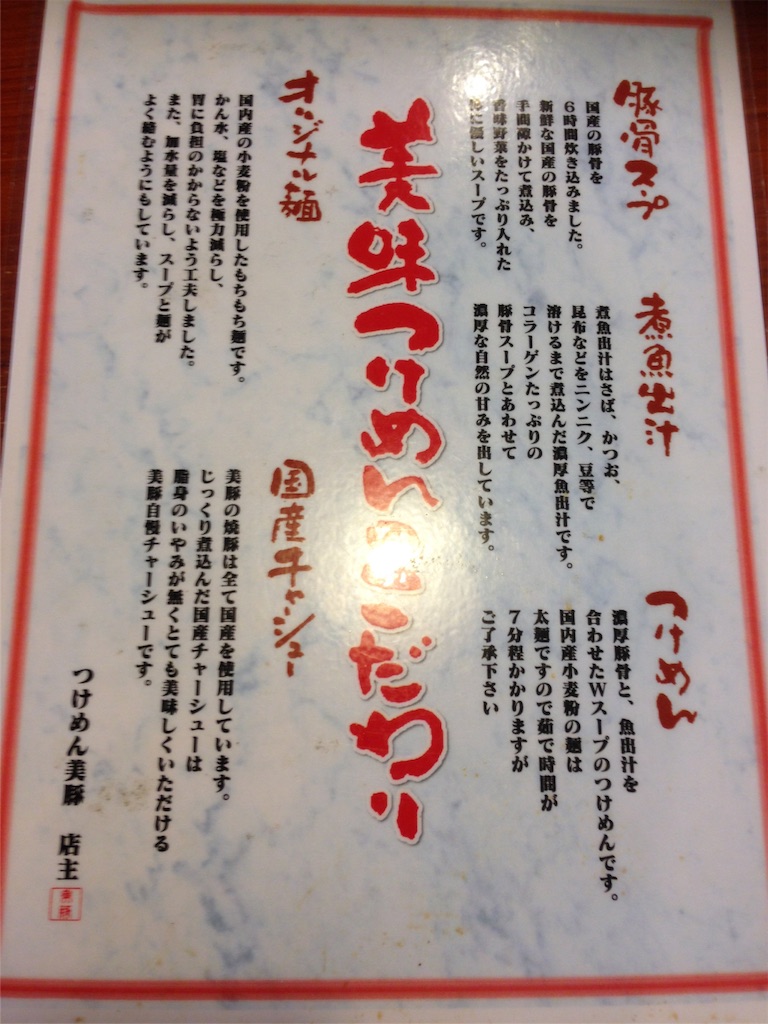 豚骨スープ
国産の豚骨を
6時間炊き込みました。
新鮮な国産の豚骨を
手間隙かけて煮込み、
香味野菜をたっぷり入れた
に優しいスープです。
煮魚出汁
煮魚出汁はさば、かつお、
昆布などをニンニク、豆等で
溶けるまで煮込んだ濃厚魚出汁です。
コラーゲンたっぷりの
豚骨スープとあわせて
濃厚な自然の甘みを出しています。
つけめん
濃厚豚骨と、魚出汁を
合わせたWスープのつけめんです。
国内産小麦粉の麺は
太麺ですので茹で時間が
7分程かかりますが
ご了承下さい
美味つけめんのこだわり
オリジナル麺
国内産の小麦粉を使用したもちもち麺です。
かん水、塩などを極力減らし、
胃に負担のかからないよう工夫しました。
また、加水量を減らし、スープと麺が
よく絡むようにもしています。
国産チャーシュー
美豚の焼豚は全て国産を使用しています。
じっくり煮込んだ国産チャーシューは
脂身のいやみが無くとても美味しくいただける
美豚自慢チャーシューです。
つけめん美豚 店主
美豚